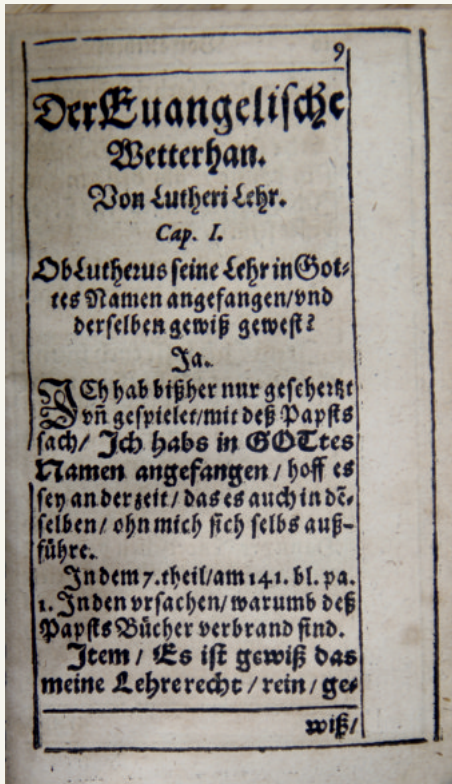 9
Der Euangelische
Wetterhan.
Von Lutheri Lehr.
Cap. I.
Ob Lutherus seine Lehr in Got⸗
tes Namen angefangen/vnd
derselben gewiß gewest?
Ja.
ICh hab bißher nur geschertzt
vñ gespielet/mit deß Papsts
sach/ Ich habs in GOTtes
Namen angefangen / hoff es
sey an der zeit / das es auch in dẽ⸗
selben / ohn mich sich selbs auß⸗
führe.
In dem 7. theil/am 141. bl. pa.
1. In den vrsachen/ warumb deß
Papsts Bücher verbrand sind.
Item / Es ist gewiß das
meine Lehre recht / rein / ge⸗
wiß/